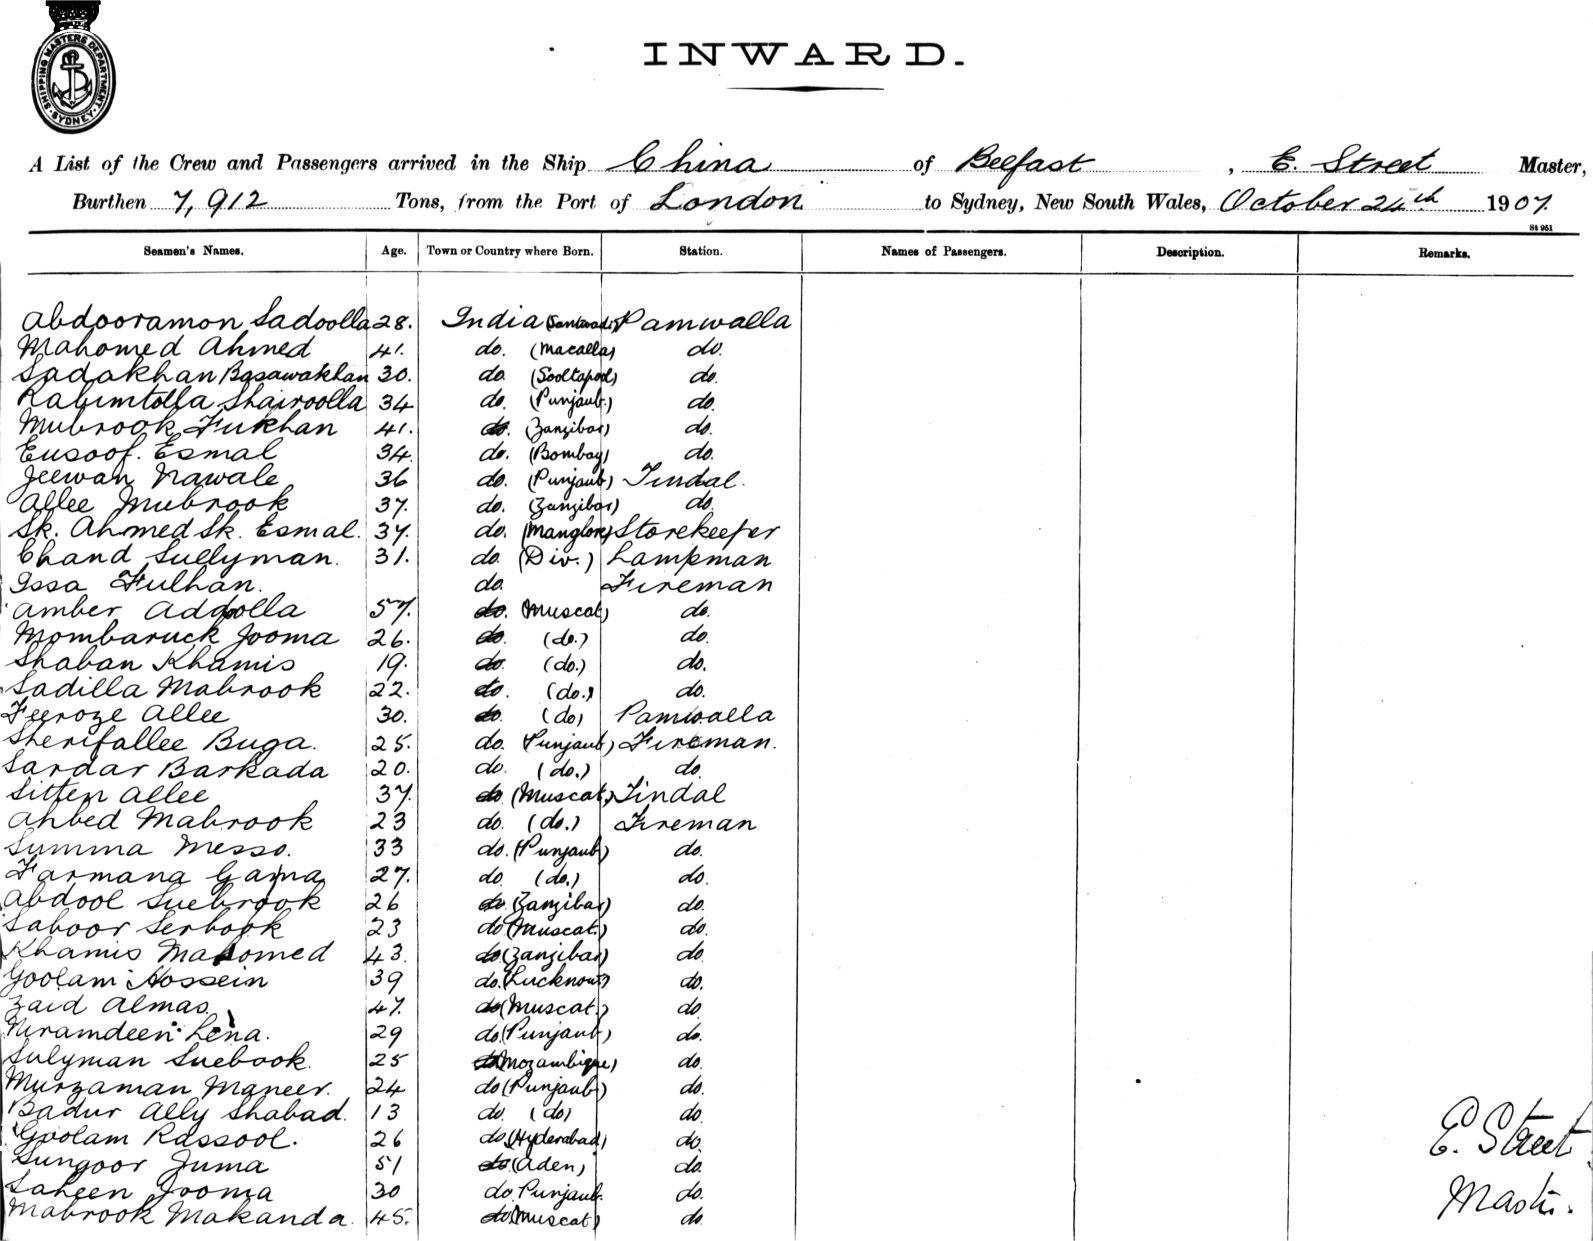 SHIPPING MASTERS DEPARTMENT SYDNEY
INWARD.
A List of the Crew and Passengers arrived in the Ship China of Belfast, E. Street Master,
Burthen 7,912 Tons, from the Port of London to Sydney, New South Wales, October 24th 1907.
St 951
Seamen's Names. Age. Town or Country where Born. Station. Names of Passengers. Description. Remarks.
Abdooramon Sadoolla 28. India Pamwalla
Mahomed Ahmed 41. do. (Macalla) do.
Sadakhan Basawakhan 30. do (Sooltapod) do.
Rahimtolla Shairoolla 34 do. (Punjaub.) do.
Mubrook Fukhan 41. do. (Zanzibar) do.
Eusoof. Esmal 34. do. (Bombay) do.
Jeewan Nawale 36 do. (Punjaub) Tindal.
Allee Mubrook 37. do. (Zanzibar) do.
Sk. Ahmed Sk. Esmal. 37. do. (Manglore) Storekeeper
Chand Sullyman. 31. do (Div.) Lampman
Issa Fulhan. do. Fireman
Amber Addoolla 57. do. Muscat) do.
Mombaruck Jooma 26. do (do.) do.
Shaban Khamis 19. do. (do.) do.
Sadilla Mabrook 22. do. (do.) do.
Feeroze Allee 30. do. (do) Pamwalla
Sherifallee Buga. 25. do. Punjaub) Fireman.
Sardar Barkada 20. do. (do.) do.
Sitten Allee 37. do (Muscat) Tindal
Ahbed Mabrook 23 do. (do.) Fireman
Summa Messo. 33 do. (Punjaub) do.
Farmana Gama 27. do (do.) do.
Abdool Suebrook 26 do. (Zanzibar) do.
Saboor Serbook 23 do (Muscat.) do.
Khamis Mahomed 43. do (Zanzibar) do
Goolam Hossein 39 do. (Lucknow) do.
Zaid Almas. 47. do (Muscat.) do
Niramdeen Lena. 29 do. (Punjaub) do.
Sulyman Suebook. 25 do (Mozambique) do.
Murzaman Maneer. 24 do (Punjaub) do.
Badur Ally Shabad. 13 do. (do) do.
Goolam Rassool. 26 do. (Hyderabad) do.
Sungoor Juma 51 do. (Aden) do.
Saheen Jooma 30 do. Punjaub. do.
Mabrook Makanda. 45. do (Muscat) do.
E. Street
Master.